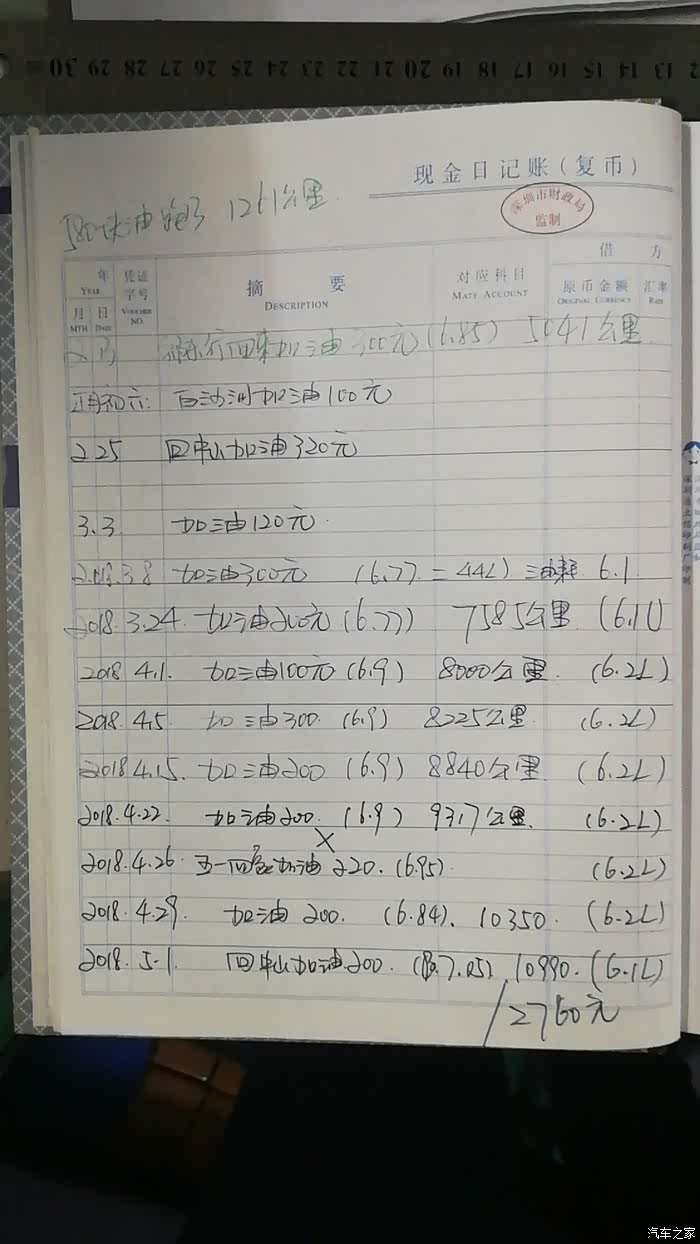 30 29 28 27 26 25 24 23 22 21 20 19 18 17 16 15 14 13 12
现金日记账(复币)
深圳市财政局
监制
580块油跑了 1261公里
年 凭证 摘 要 对应科目 借 方
YEAR 字号 DESCRIPTION MATE ACCOUNT 原币金额 汇率
月 日 VOUCHER ORIGINAL CURRENCY RATE
MTH DATE NO.
2 13 回来加油300元(6.85) 5041公里
正月初六: 白沙洲加油100元
2.25 回中山加油320元
3.3. 加油120元.
2018.3.8 加油300元 (6.77=44L) 油耗 6.1.
2018.3.24. 加油200元(6.77) 7585公里 (6.1L)
2018 4.1. 加油100元(6.9) 8000公里. (6.2L)
2018.4.5 加油300. (6.9) 8225公里. (6.2L)
2018 4.15. 加油200 (6.9) 8840公里. (6.2L)
2018.4.22. 加油200. (6.9) 9317公里. (6.2L)
2018.4.26. 五一回家加油 220. (6.95). (6.2L)
2018.4.29. 加油 200. (6.84). 10350. (6.2L)
2018. 5.1. 回中山加油.200. (7.05) 10990. (6.1L)
2760元
汽车之家